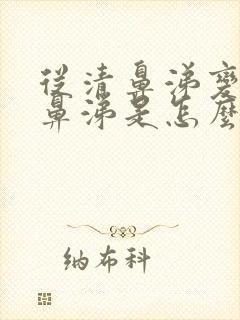 從清鼻涕變
鼻涕是怎麼
纳布科